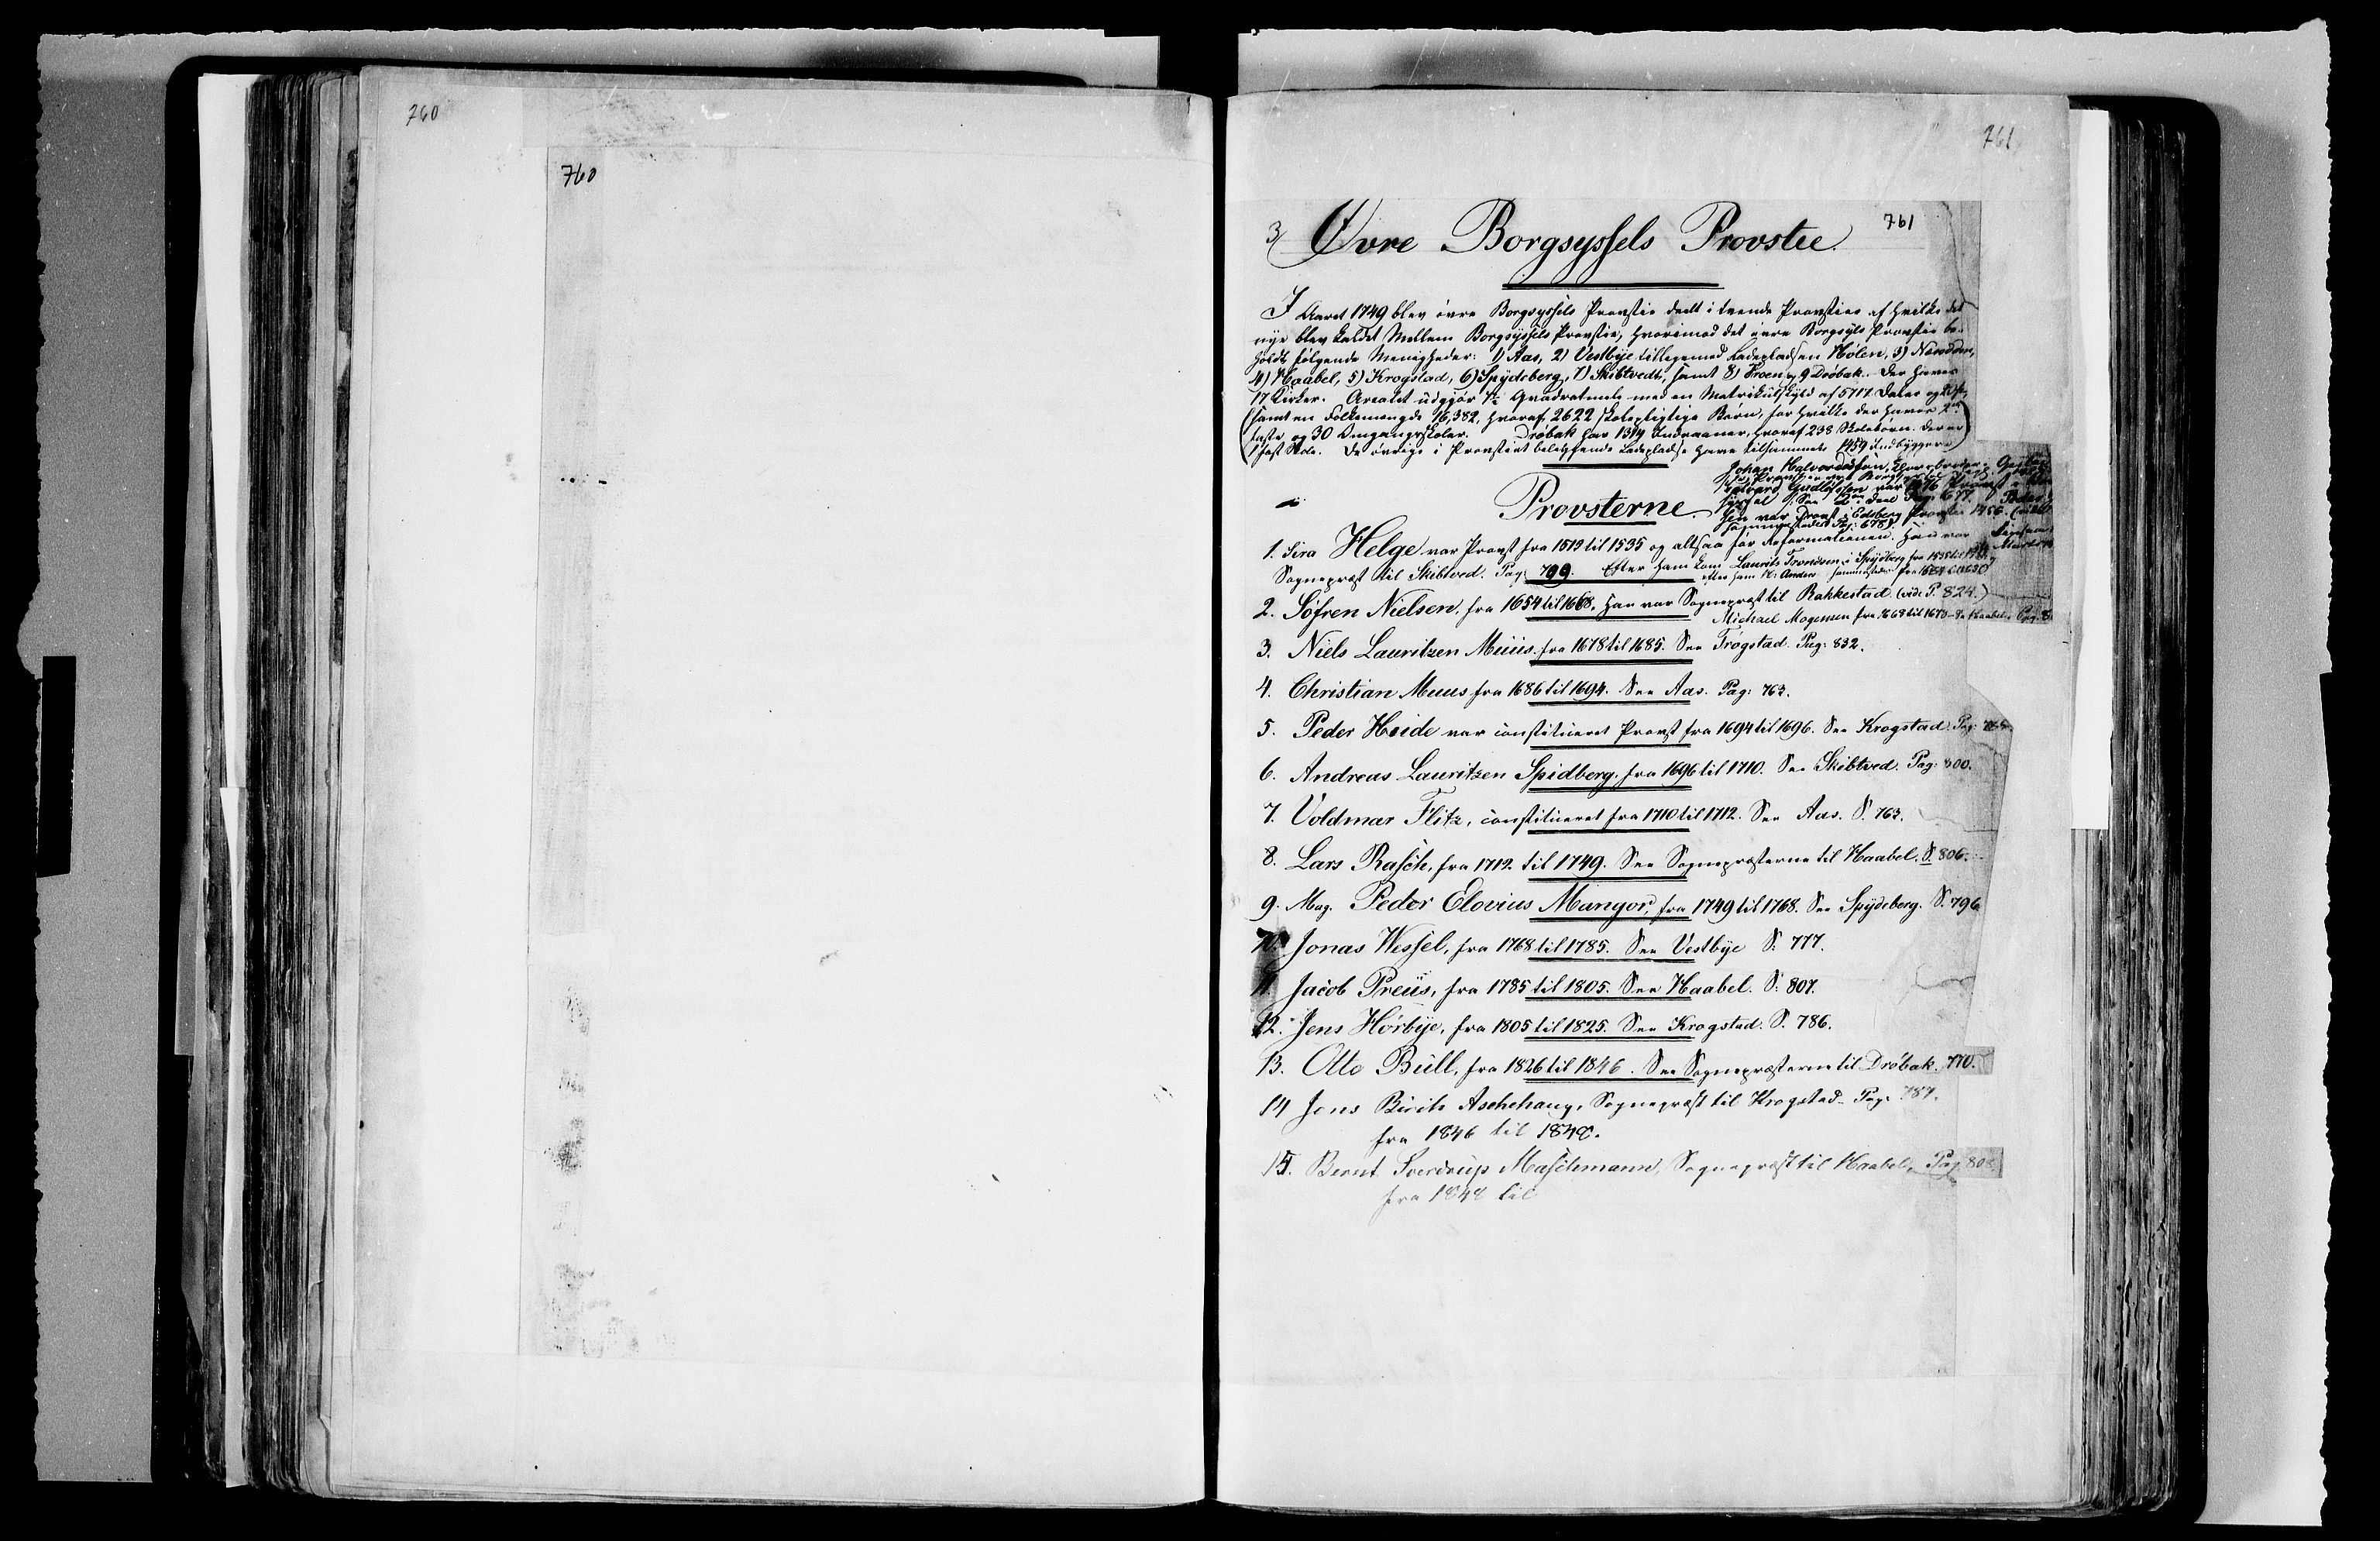 760
760
761
761
3) Øvre Borgsyssels Provstie.
I Aaret 1749 blev övre Borgsyssels Provstie deelt i tvende Provstier af hvilke det
nye blev kaldet Mellem Borgsyssels Provstie, hvorimod det övre Borgsyls Provstie be-
holdt følgende Menigheder: 1) Aas, 2) Vestbÿe tilligemed Ladepladsen Hölen, 3) Nesodden,
4) Haabel, 5) Krogstad, 6) Spÿdeberg, 7) Skibtvedt, samt 8) Froen og 9 Dröbak. Der haves
17 Kirker. Arealet udgjør Qvadratmile med en Matrikulskÿld af 5717 Daler og
(samt en Folkemængde 16,382, hvoraf 2622 skolepligtige Børn, for hvilke der haves 2de
faste og 30 Omgangsskoler. Dröbak har 1314 Indvaaner, hvoraf 238 Skolebørn. Der er
1 fast Skole. De övrige i Provstiet Ladepladse have tilsammen 1459 Indbÿggere)
Johan Halvordssön,
Provst Borgsyssel
var Provst i
syssel See deel Pag. 677. Peder
Sen var Provst i Edsberg Provstie 1456. (
sammestedes Pag. 678)
Provsterne.
1. Sira Helge var Provst fra 1519 til 1535 og altsaa før Reformationen. Han var
Sognepræst til Skibtved. Pag. 799. Efter ham kom Laurits Trondsen i Spÿdberg fra 1535 til
efter ham Hr. Anders sammesteds fra
2. Söfren Nielsen, fra 1654 til 1668. Han var Sognepræst til Rakkestad. (vide P. 824.)
Michael Mogensen fra 1668 til 1678 – Haabel. Pag. 8
3. Niels Lauritzen Muus fra 1678 til 1685. See Trøgstad. Pag: 832.
4. Christian Muus fra 1686 til 1694. See Aas. Pag: 763.
5. Peder Heide var constitueret Provst fra 1694 til 1696. See Krogstad. Pag:
6. Andreas Lauritzen Spidberg, fra 1696 til 1710. See Skibtved. Pag: 800.
7. Voldmar Flitz, constitueret fra 1710 til 1712. See Aas. S. 763.
8. Lars Rasch, fra 1712 til 1749. See Sognepræsterne til Haabel. S. 806.
9. Mag. Peder Elovius Mangor, fra 1749 til 1768. See Spÿdeberg. S. 796
10. Jonas Wessel, fra 1768 til 1785. See Vestbÿe S. 777.
11. Jacob Preüs, fra 1785 til 1805. See Haabel. S. 807.
12. Jens Hörbÿe, fra 1805 til 1825. See Krogstad. S. 786.
13. Otto Bull, fra 1826 til 1846. See Sognepræsterne til Dröbak. 770.
14 Jens Birch Aschehaug, Sognepræst til Krogstad – Pag. 787.
fra 1846 til 1848.
15. Bernt Sverdrup Maschmann, Sognepræst til Haabel, Pag 808
fra 1848 til